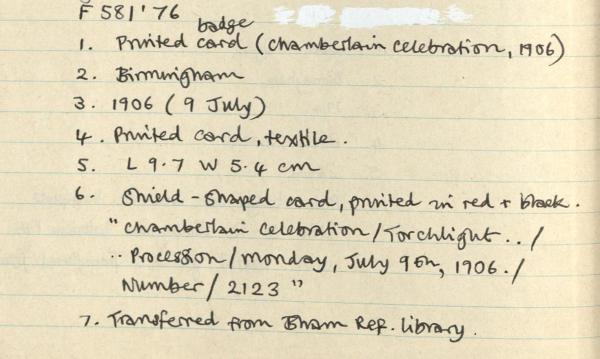 F 581'76
badge
1. Printed card (Chamberlain Celebration, 1906)
2. Birmingham
3. 1906 (9 July)
4. Printed card, textile.
5. L 9.7 W 5.4 cm
6. Shield-shaped card, printed in red + black.
"Chamberlain Celebration/Torchlight../
..Procession/Monday, July 9th, 1906./
Number/2123"
7. Transferred from Bham Ref. Library.